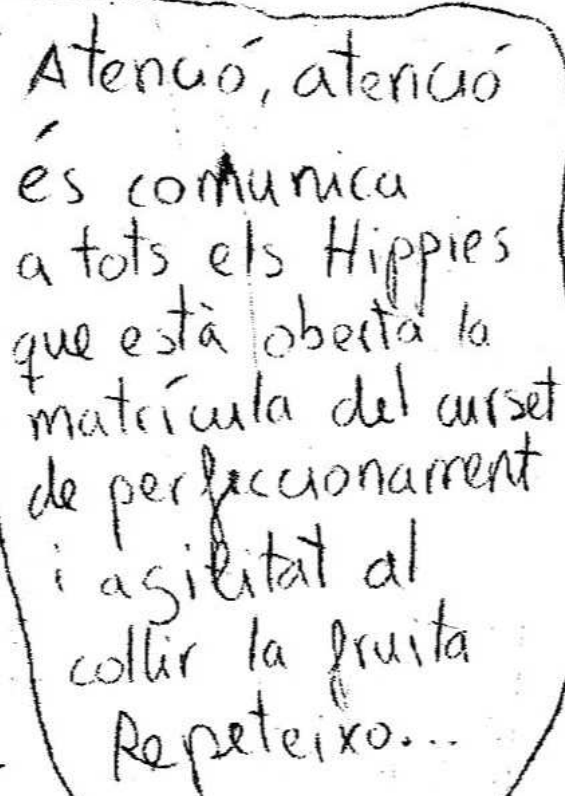 Atenció, atenció
és comunica
a tots els Hippies
que està oberta la
matrícula del curset
de perfeccionament
i agilitat al
collir la fruita
Repeteixo...